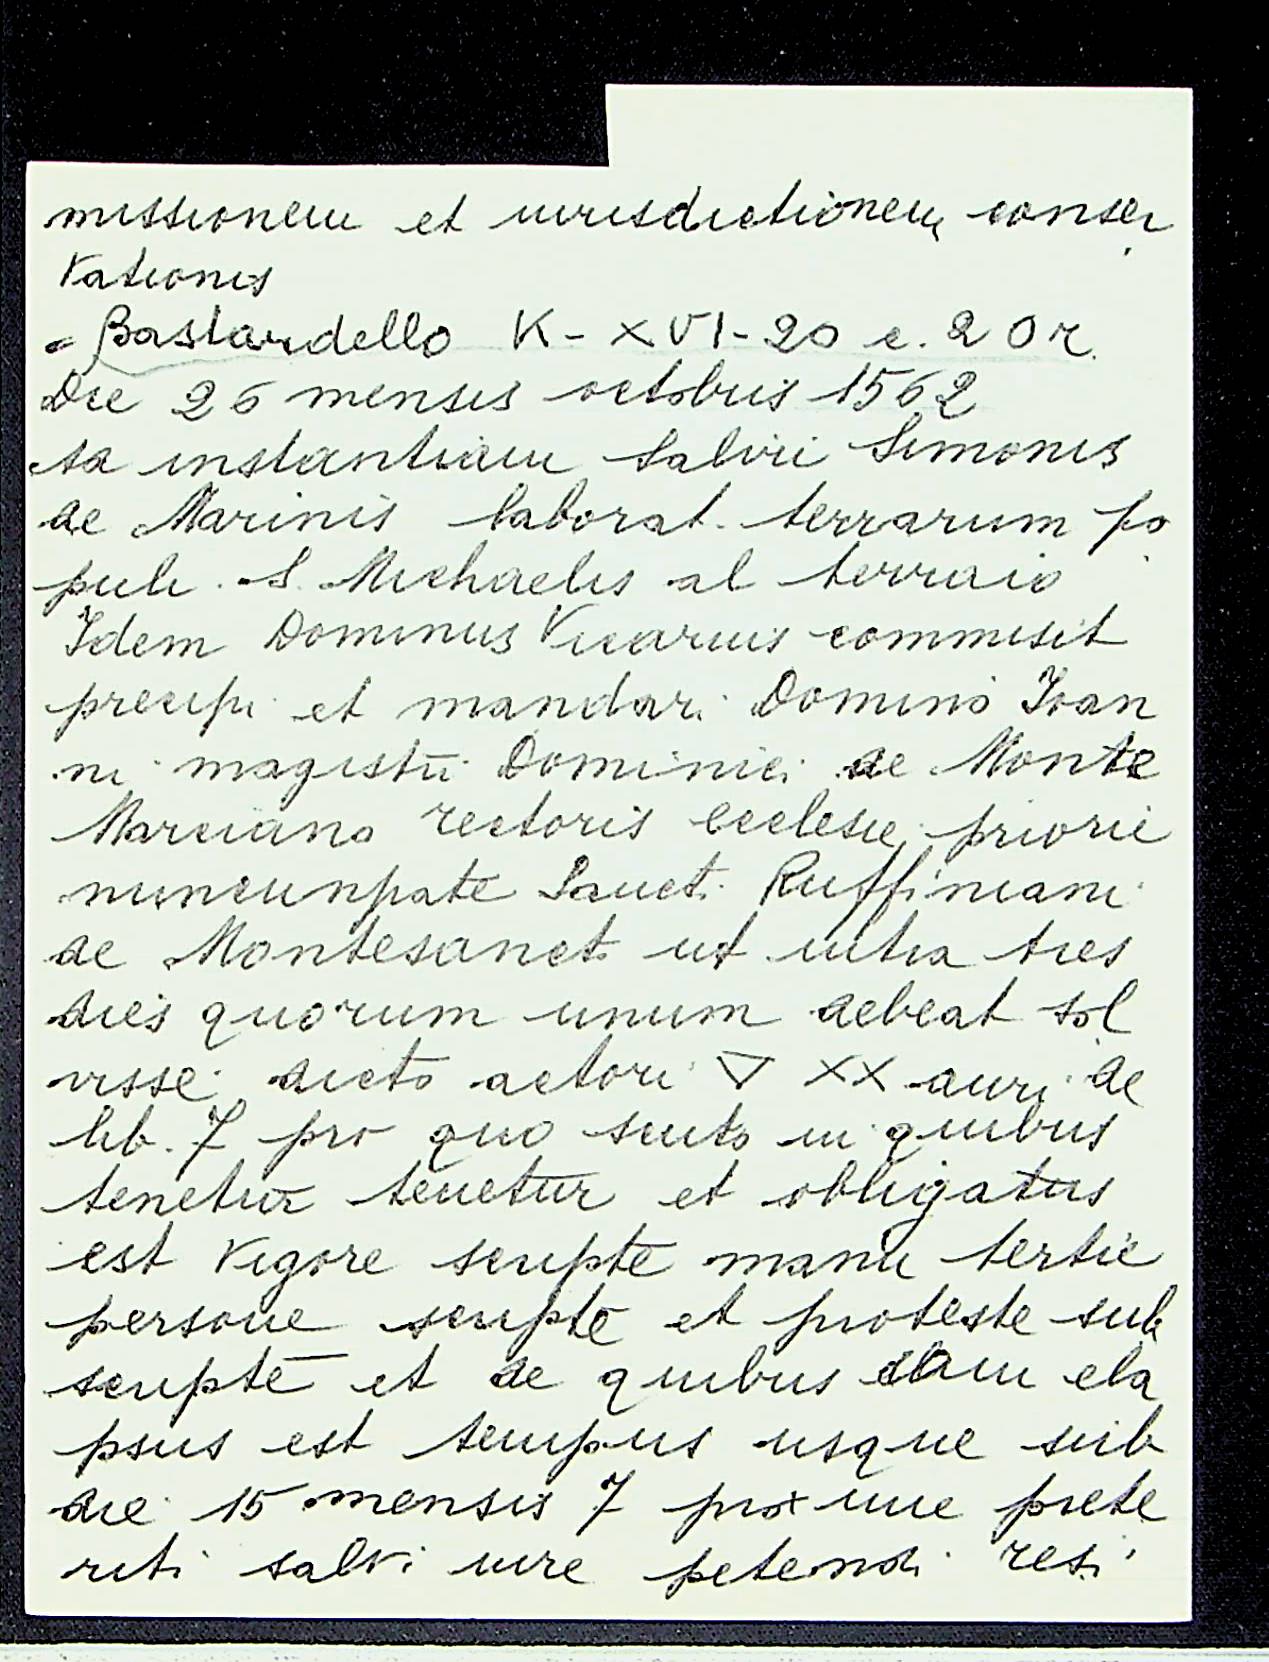 missionem et iurisdictionem conser
vationis
= Bastardello K - XVI - 20 c. 20 r.
Die 26 mensis octobris 1562
sa instantiam Salvi Simonis
de Marinis laborat. terrarum po
puli S. Michaelis al terraio
Idem Dominus Vicarius commisit
precipi et mandari Domino Ioan
ni magistri Dominici de Monte
Marciano rectoris ecclesie priorie
nuncunpate Sancti Ruffiniani
de Montesancto ut infra tres
dies quorum unum debeat sol
visse dicto actori ▽ XX auri de
lib. 7 pro quo scuto in quibus
tenetur tenetur et obligatus
est vigore scripte manu tertie
persone scripte et proteste sub
scripte et de quibus etiam ela
psus est tempus usque sub
die 15 mensis 7 proxime prete
riti salvi iure petendi resi